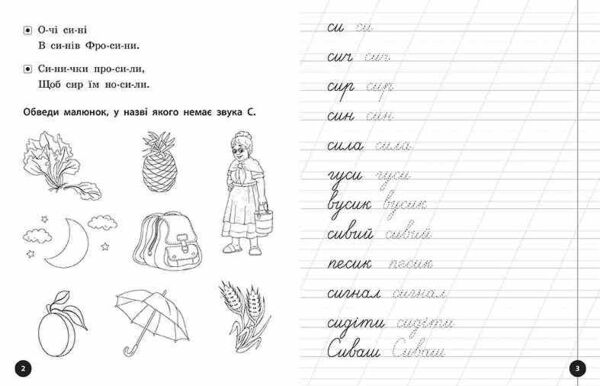 О-чі си-ні
В си-нів Фро-си-ни.
Си-ни-чки про-си-ли,
Щоб сир їм но-си-ли.
Обведи малюнок, у назві якого немає звука С.
2
си си
сич сич
сир сир
син син
сила сила
гуси гуси
вусик вусик
сивий сивий
песик песик
сигнал сигнал
сидіти сидіти
Сиваш Сиваш
3